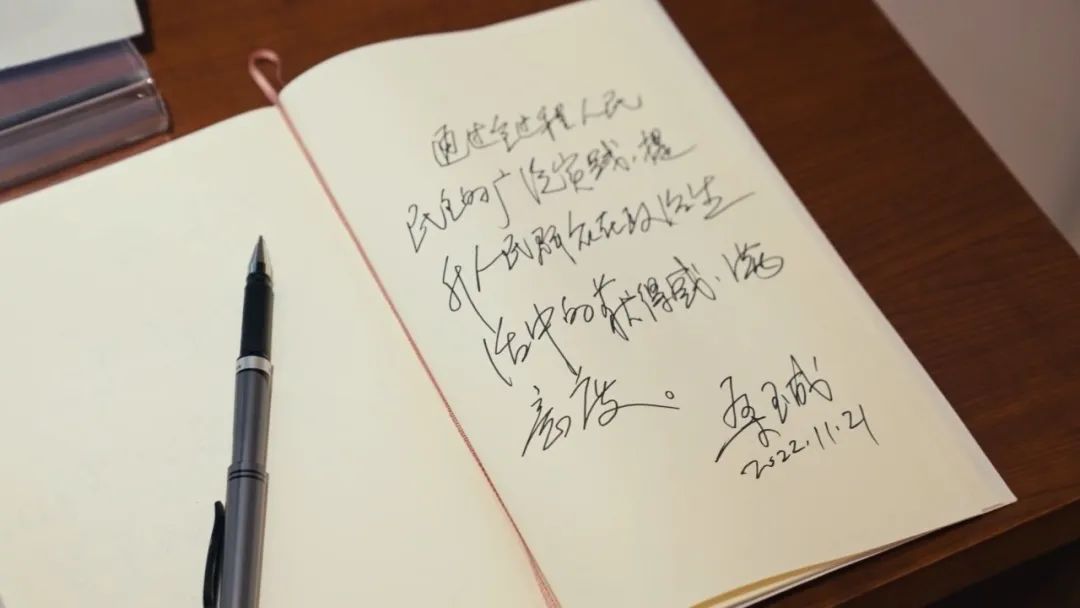 通过全过程人民
民主的广泛实践、提
升人民群众在政治生
活中的获得感、满
意度。
桑玉成
2022.11.21